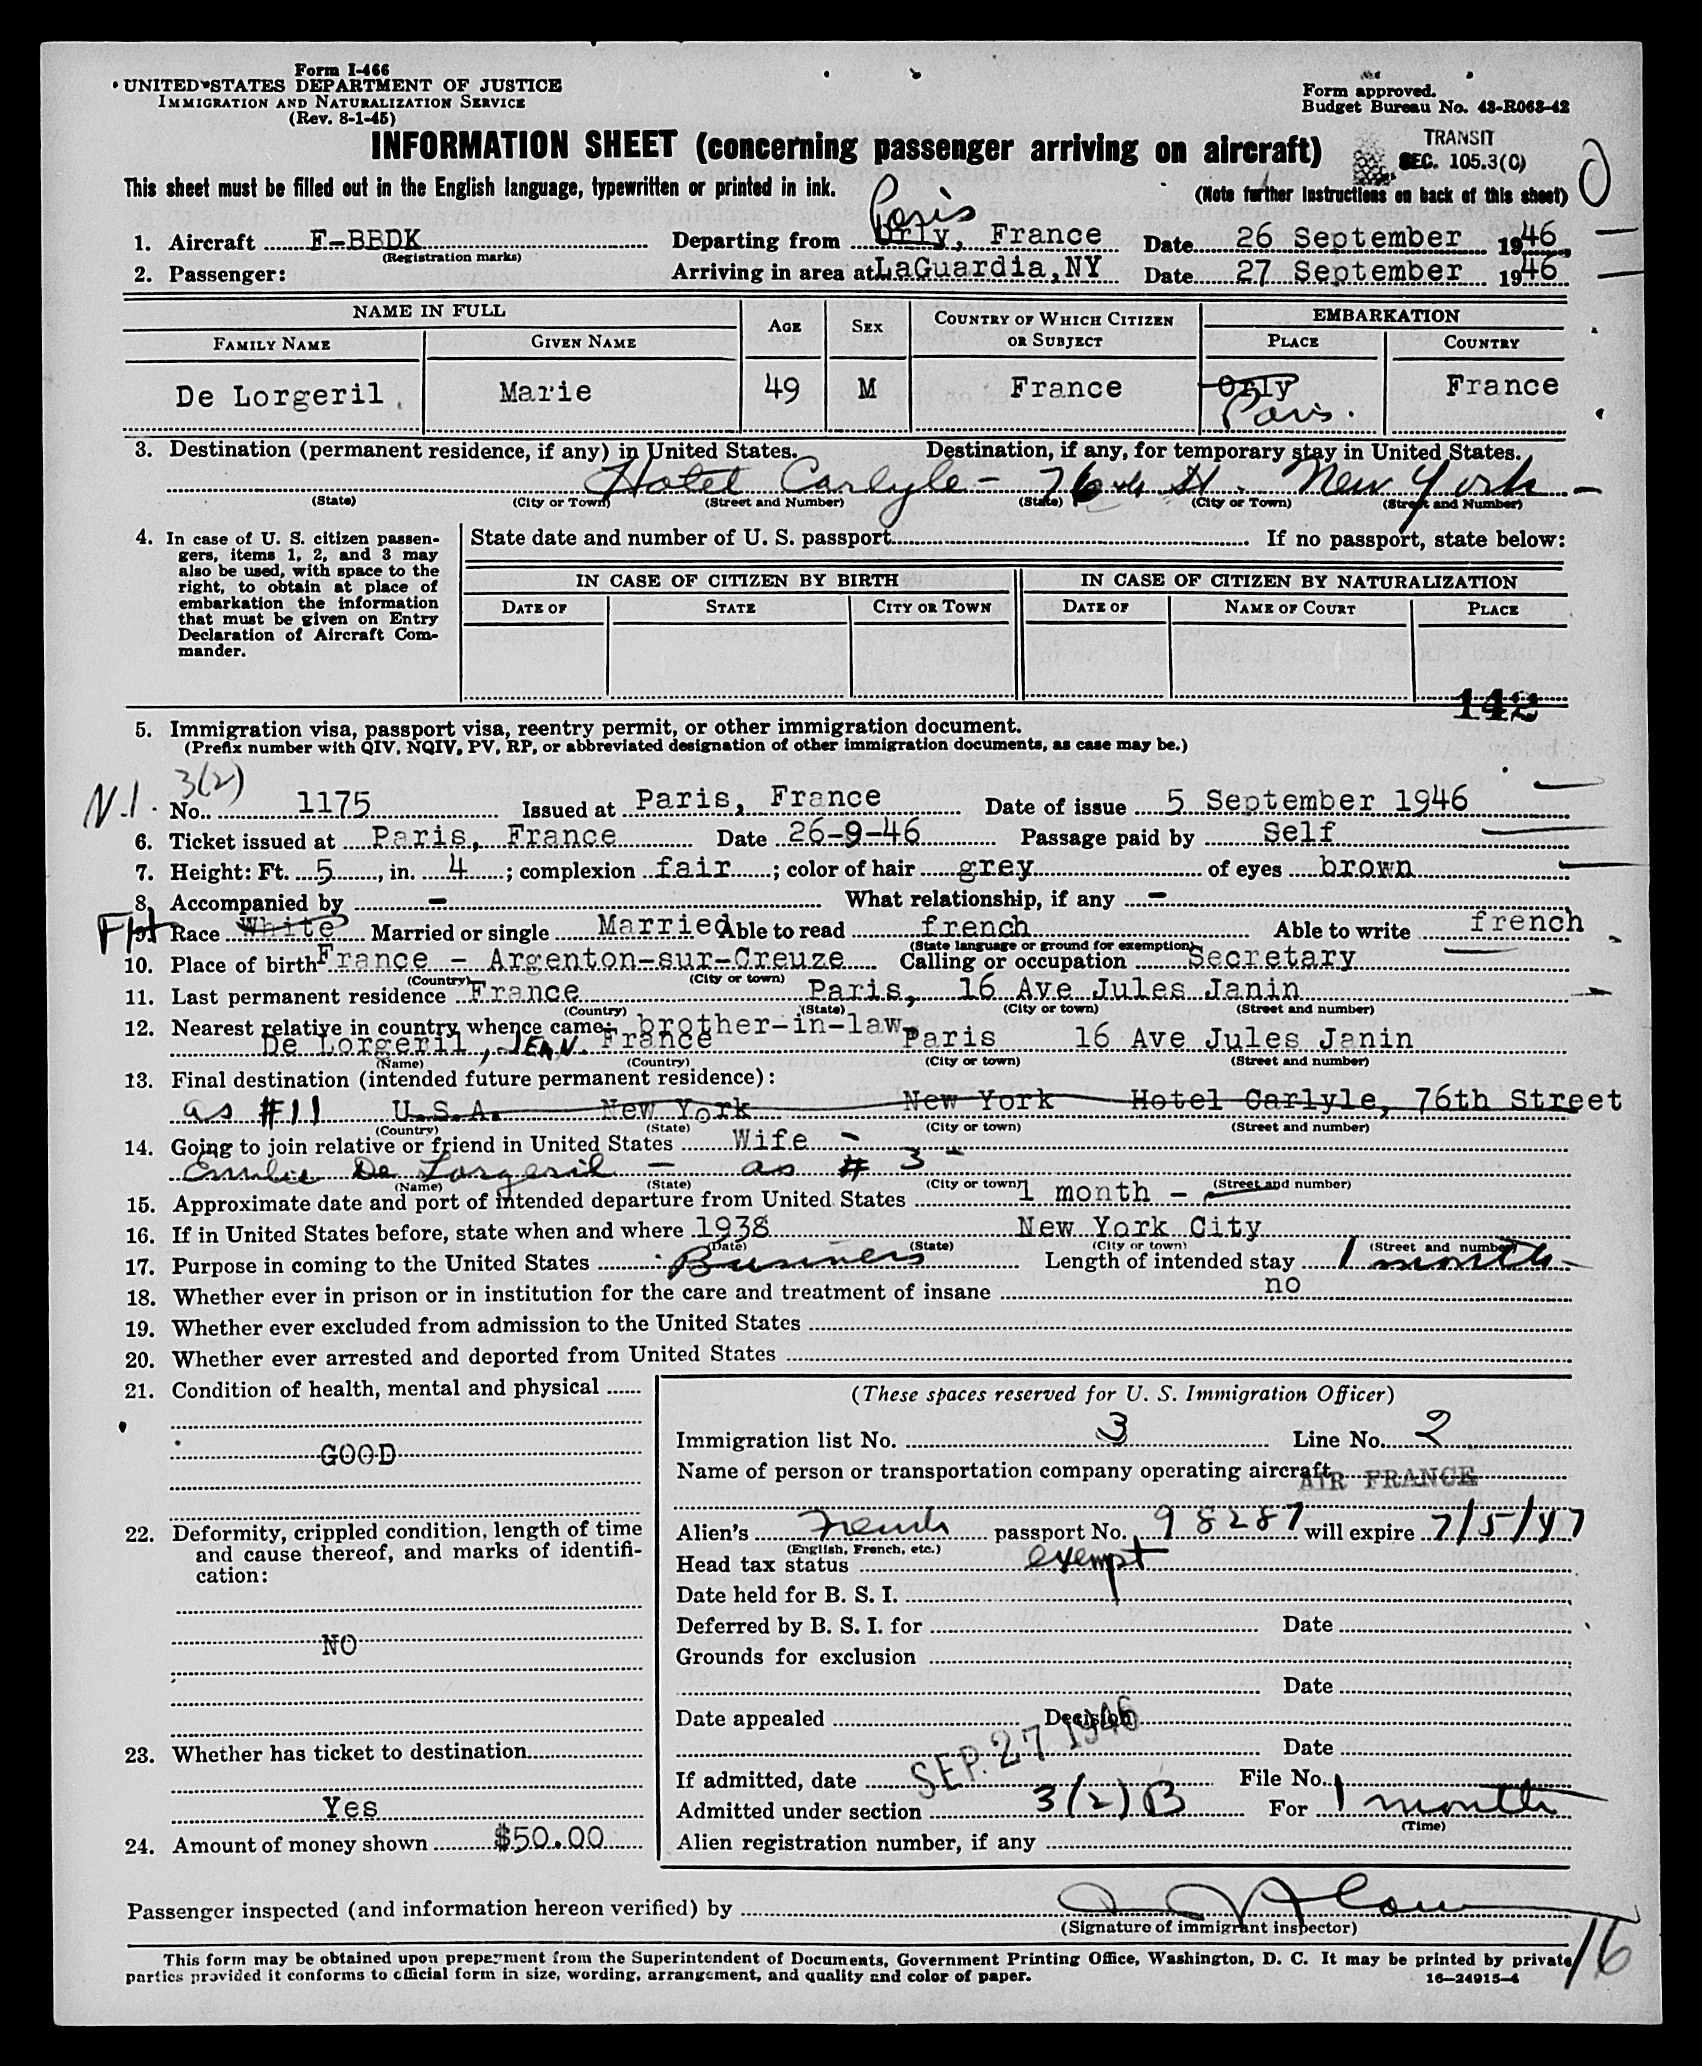 Form I-466
UNITED STATES DEPARTMENT OF JUSTICE
IMMIGRATION AND NATURALIZATION SERVICE
(Rev. 8-1-45)
Form approved.
Budget Bureau No. 43-R063-42
INFORMATION SHEET (concerning passenger arriving on aircraft)
TRANSIT
SEC. 105.3(C)
This sheet must be filled out in the English language, typewritten or printed in ink.
(Note further instructions on back of this sheet)
Paris
1. Aircraft F-BBDK Departing from Orly, France Date 26 September 1946
(Registration marks)
2. Passenger: Arriving in area at LaGuardia, NY Date 27 September 1946
NAME IN FULL AGE SEX COUNTRY OF WHICH CITIZEN OR SUBJECT EMBARKATION
FAMILY NAME GIVEN NAME PLACE COUNTRY
De Lorgeril Marie 49 M France Orly France
Paris.
3. Destination (permanent residence, if any) in United States. Destination, if any, for temporary stay in United States.
Hotel Carlyle - 76th St. New York -
(State) (City or Town) (Street and Number) (State) (City or Town) (Street and Number)
4. In case of U. S. citizen passen-
gers, items 1, 2, and 3 may
also be used, with space to the
right, to obtain at place of
embarkation the information
that must be given on Entry
Declaration of Aircraft Com-
mander.
State date and number of U. S. passport If no passport, state below:
IN CASE OF CITIZEN BY BIRTH IN CASE OF CITIZEN BY NATURALIZATION
DATE OF STATE CITY OR TOWN DATE OF NAME OF COURT PLACE
142
5. Immigration visa, passport visa, reentry permit, or other immigration document.
(Prefix number with QIV, NQIV, PV, RP, or abbreviated designation of other immigration documents, as case may be.)
N.I. 3(2)
No. 1175 Issued at Paris, France Date of issue 5 September 1946
6. Ticket issued at Paris, France Date 26-9-46 Passage paid by Self
7. Height: Ft. 5, in. 4; complexion fair; color of hair grey of eyes brown
8. Accompanied by - What relationship, if any -
9. Race White Married or single Married Able to read french Able to write french
(State language or ground for exemption)
10. Place of birth France - Argenton-sur-Creuze Calling or occupation Secretary
(Country) (City or town)
11. Last permanent residence France Paris, 16 Ave Jules Janin
(Country) (State) (City or town) (Street and number)
12. Nearest relative in country whence came: brother-in-law
De Lorgeril, JEAN. France Paris 16 Ave Jules Janin
(Name) (Country) (City or town) (Street and number)
13. Final destination (intended future permanent residence):
as #11 U.S.A. New York New York Hotel Carlyle, 76th Street
(Country) (State) (City or town) (Street and number)
14. Going to join relative or friend in United States Wife -
De Lorgeril - as # 3 -
(Name) (State) (City or town) (Street and number)
15. Approximate date and port of intended departure from United States 1 month -
16. If in United States before, state when and where 1938 New York City
(Date) (State) (City or town) (Street and number)
17. Purpose in coming to the United States Business Length of intended stay 1 month -
18. Whether ever in prison or in institution for the care and treatment of insane no
19. Whether ever excluded from admission to the United States
20. Whether ever arrested and deported from United States
21. Condition of health, mental and physical
GOOD
22. Deformity, crippled condition, length of time
and cause thereof, and marks of identifi-
cation:
NO
23. Whether has ticket to destination
Yes
24. Amount of money shown $50.00
(These spaces reserved for U. S. Immigration Officer)
Immigration list No. 3 Line No. 2
Name of person or transportation company operating aircraft AIR FRANCE
Alien's French passport No. 98287 will expire 7/5/47
(English, French, etc.)
Head tax status exempt
Date held for B. S. I.
Deferred by B. S. I. for Date
Grounds for exclusion
Date
Date appealed Decision
Date
If admitted, date SEP. 27 1946 File No.
Admitted under section 3(2)B For 1 month
(Time)
Alien registration number, if any
Passenger inspected (and information hereon verified) by
(Signature of immigrant inspector)
This form may be obtained upon prepayment from the Superintendent of Documents, Government Printing Office, Washington, D. C. It may be printed by private
parties provided it conforms to official form in size, wording, arrangement, and quality and color of paper.
16—24915-4
16